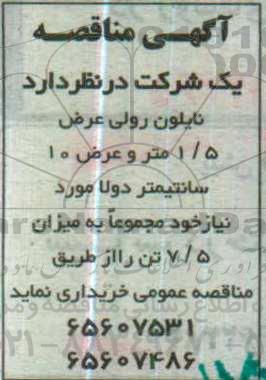 آگهی مناقصه
یک شرکت درنظردارد
نایلون رولی عرض
۱/۵ متر و عرض ۱۰
سانتیمتر دولا مورد
نیازخود مجموعاً به میزان
۷/۵ تن رااز طریق
مناقصه عمومی خریداری نماید
۶۵۶۰۷۵۳۱
۶۵۶۰۷۴۸۶